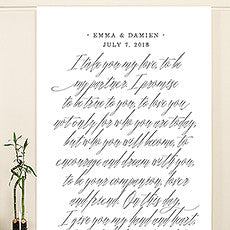 • EMMA & DAMIEN •
JULY 7, 2018
I take you my love, to be
my partner. I promise
to be true to you, to love you
not only for who you are today,
but who you will become, to
encourage and dream with you,
to be your companion, lover
and friend. On this day,
I give you my hand and heart,